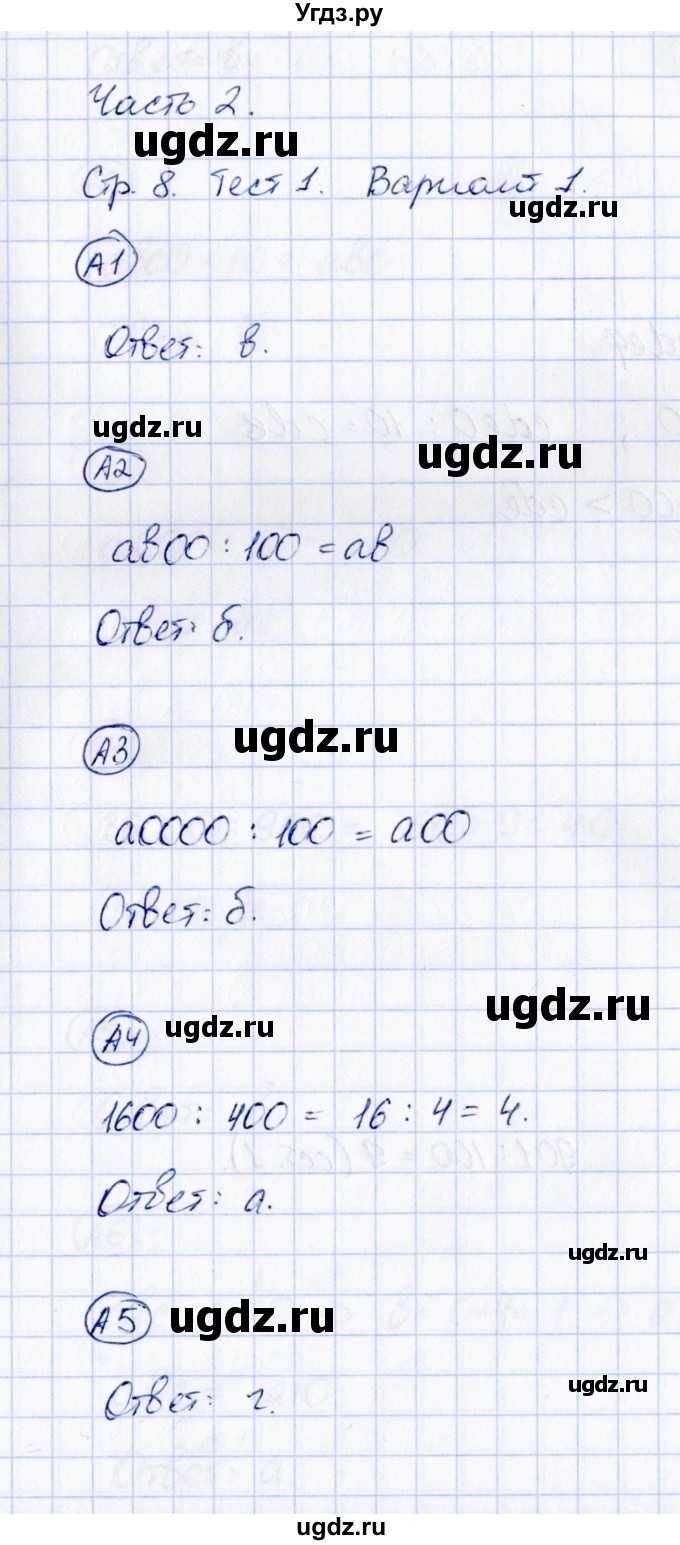 Угдз.ру
Часть 2.
ugdz.ru
Стр. 8. Тест 1. Вариант 1.
ugdz.ru
А1
Ответ: в.
ugdz.ru
ugdz.ru
А2
ав00 : 100 = ав
Ответ: б.
ugdz.ru
А3
а0000 : 100 = а00
Ответ: б.
ugdz.ru
ugdz.ru
А4
1600 : 400 = 16 : 4 = 4.
Ответ: а.
ugdz.ru
ugdz.ru
А5
ugdz.ru
Ответ: г.
ugdz.ru